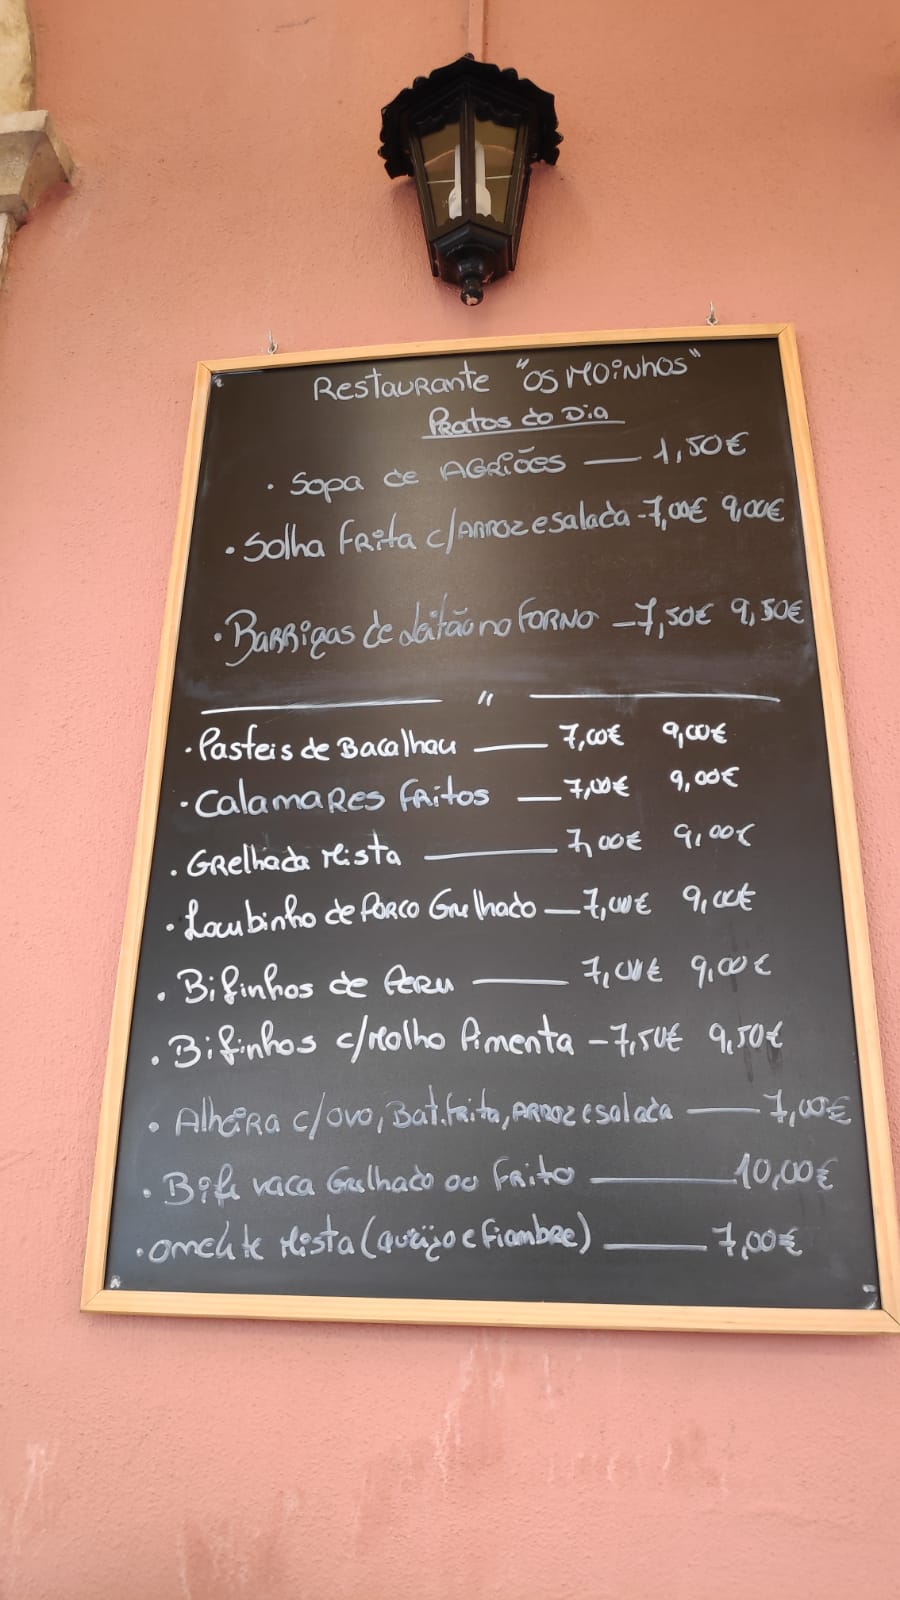 Restaurante "Os Moinhos"
Pratos do Dia
· Sopa de Agriões — 1,50€
· Solha Frita c/Arroz e salada - 7,00€ 9,00€
· Barrigas de Leitão no Forno — 7,50€ 9,50€
——— " ———
· Pasteis de Bacalhau — 7,00€ 9,00€
· Calamares Fritos — 7,00€ 9,00€
· Grelhada Mista — 7,00€ 9,00€
· Lombinho de Porco Grelhado — 7,00€ 9,00€
· Bifinhos de Peru — 7,00€ 9,00€
· Bifinhos c/Molho Pimenta - 7,50€ 9,50€
· Alheira c/ovo, Bat.frita, Arroz e salada — 7,00€
· Bife vaca Grelhado ou Frito — 10,00€
· Omelete Mista (queijo e Fiambre) — 7,00€